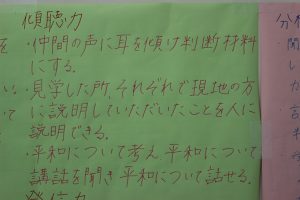 傾聴力
・仲間の声に耳を傾け判断材料
にする.
・見学した所、それぞれで現地の方
に説明していただいたことを人に
説明できる.
・平和について考え平和について
講話を聞き平和について話せる.
発信力